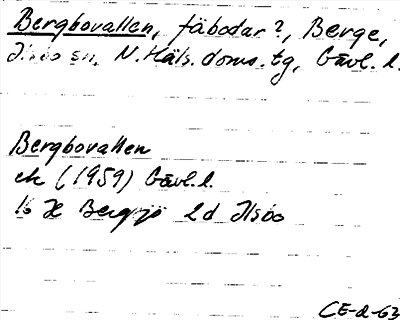 Bergbovallen, fäbodar?, Berge,
Ilsbo sn, N. Häls. doms. tg, Gävl. l.
Bergbovallen
ek (1959) Gävl. l.
16 H Bergsjö 2d Ilsbo
CE-d-63